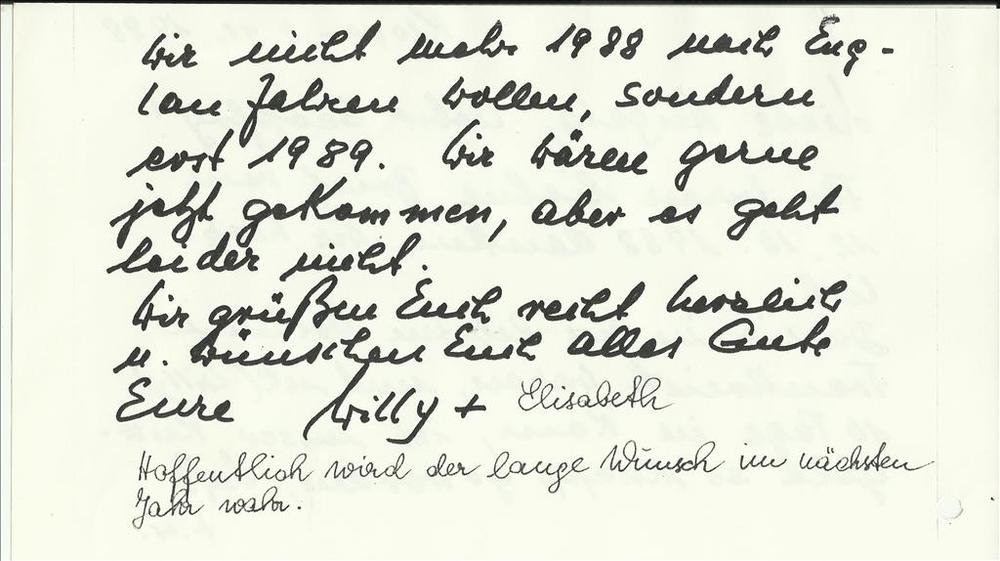 wir nicht mehr 1988 nach Eng-
lan fahren wollen, sondern
erst 1989. Wir wären gerne
jetzt gekommen, aber es geht
leider nicht.
Wir grüßen Euch recht herzlich
u. wünschen Euch alles Gute
Eure Willy + Elisabeth
Hoffentlich wird der lange Wunsch im nächsten
Jahr wahr.